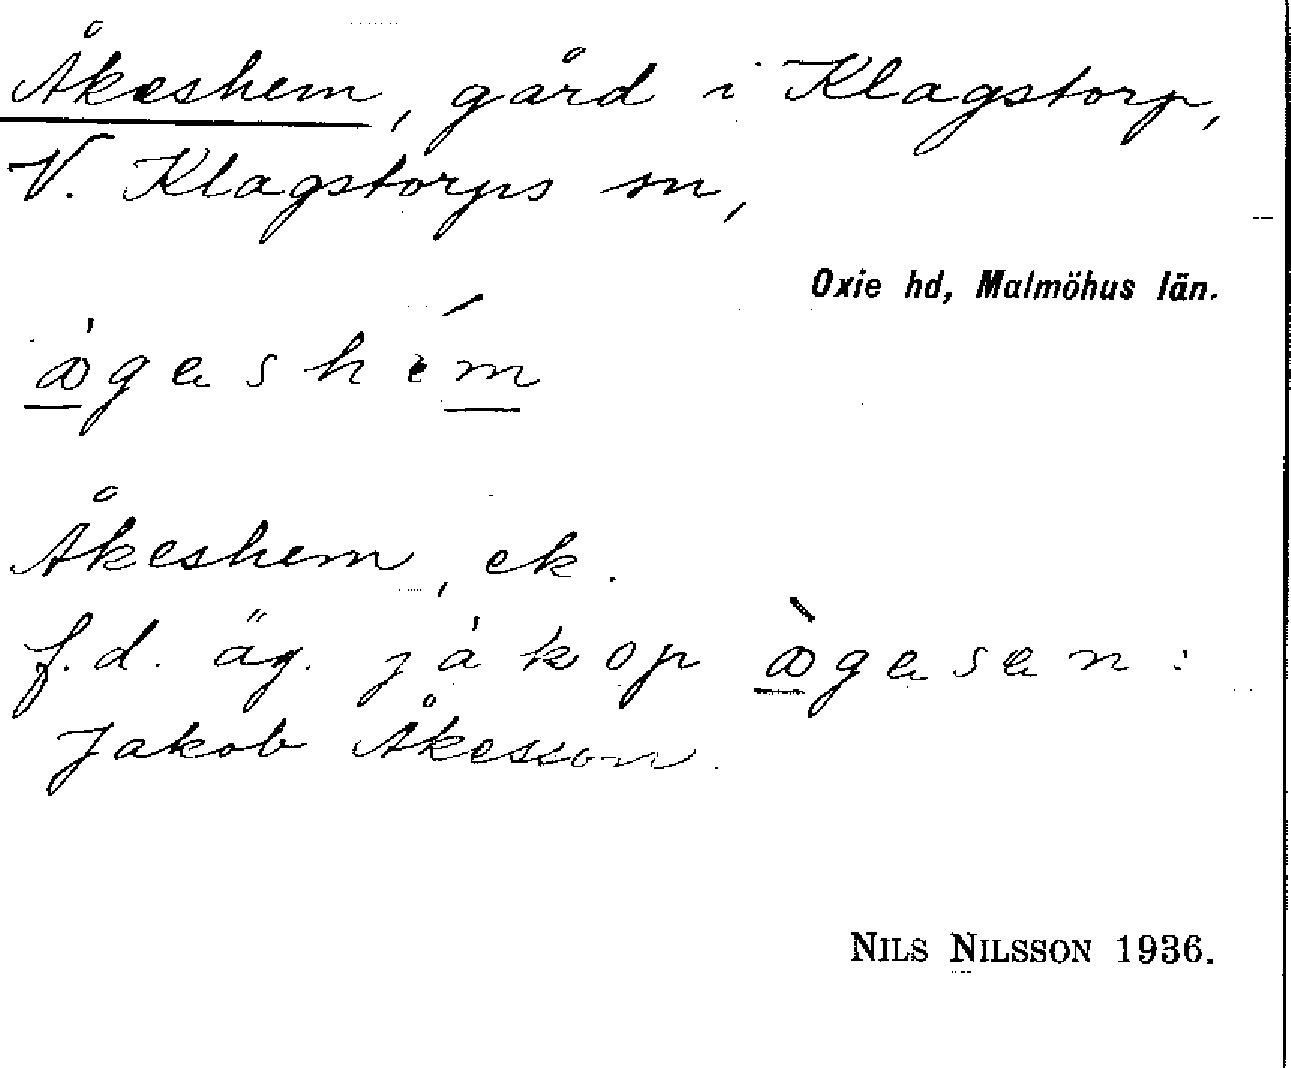 Åkeshem, gård i Klagstorp,
V. Klagstorps sn,
Oxie hd, Malmöhus län.
Åkeshem, ek.
f.d. äg. jàkop ågesen:
Jakob Åkesson.
NILS NILSSON 1936.